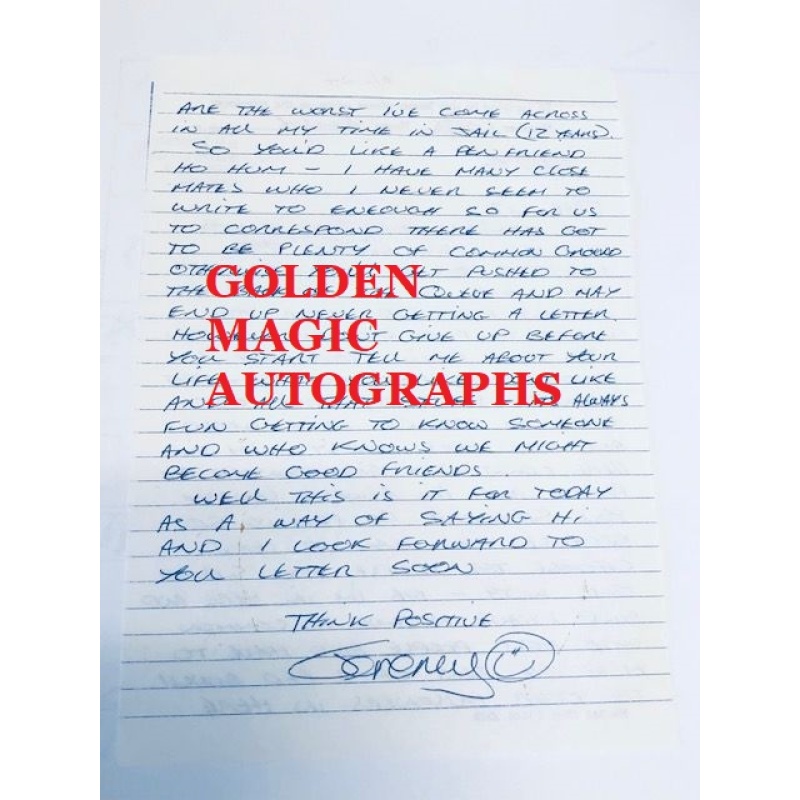 ARE THE WORST I'VE COME ACROSS
IN ALL MY TIME IN JAIL (12 YEARS).
SO YOU'D LIKE A PENFRIEND
HO HUM - I HAVE MANY CLOSE
MATES WHO I NEVER SEEM TO
WRITE TO ENEOUGH SO FOR US
TO CORRESPOND THERE HAS GOT
TO BE PLENTY OF COMMON GROUND
OTHERWISE YOU'LL GET PUSHED TO
THE BACK OF THE QUEUE AND MAY
END UP NEVER GETTING A LETTER.
HOWEVER DON'T GIVE UP BEFORE
YOU START TELL ME ABOUT YOUR
LIFE WHAT YOU LIKE DON'T LIKE
AND ALL THAT STUFF ITS ALWAYS
FUN GETTING TO KNOW SOMEONE
AND WHO KNOWS WE MIGHT
BECOME GOOD FRIENDS.
WELL THIS IS IT FOR TODAY
AS A WAY OF SAYING HI
AND I LOOK FORWARD TO
YOU LETTER SOON
THINK POSITIVE
GOLDEN
MAGIC
AUTOGRAPHS